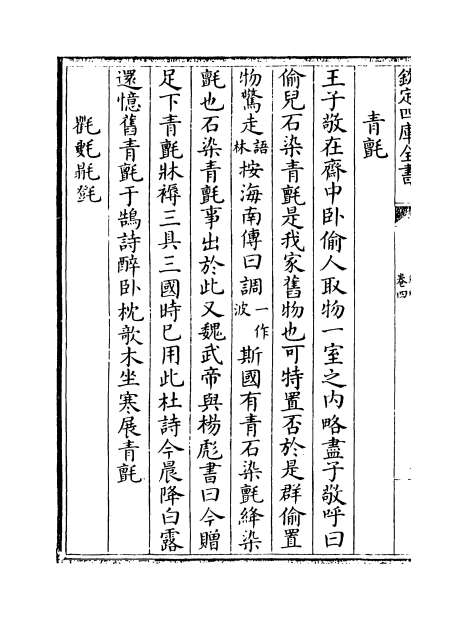 欽定四庫全書
卷四
青氈
王子敬在齋中卧偷人取物一室之内略盡子敬呼曰
偷兒石染青氈是我家舊物也可特置否於是群偷置
物驚走語林按海南傳曰調一作波斯國有青石染氈絳染
氈也石染青氈事出於此又魏武帝與楊彪書曰今贈
足下青氈牀褥三具三國時已用此杜詩今晨降白露
還憶舊青氈于鵠詩醉卧枕欹木坐寒展青氈